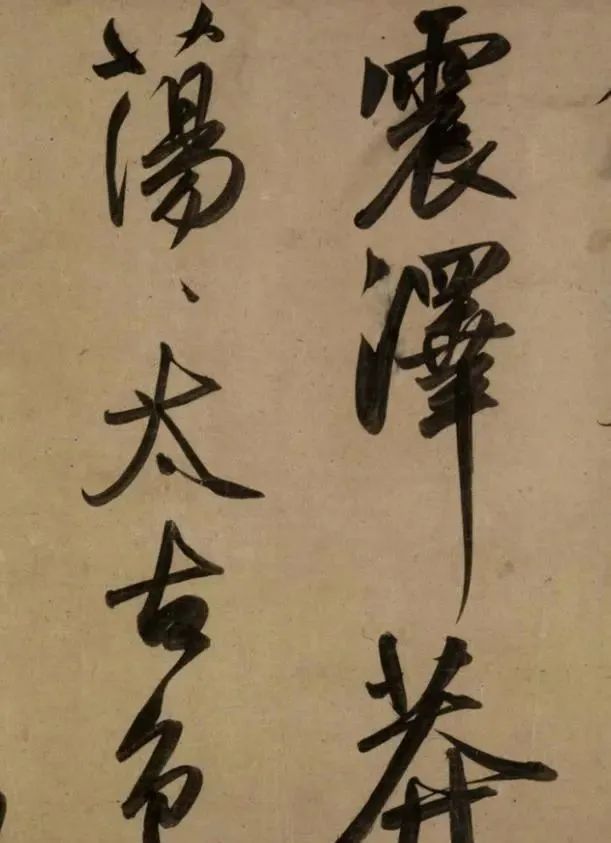 震澤莽
蕩、太古色